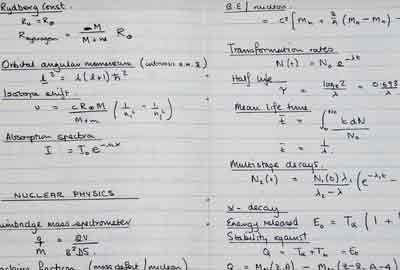 Rydberg Const.
R₀ = R∞
R_hydrogen = M / (M + m) R∞
Orbital angular momentum
L² = l(l+1)ħ²
Isotope shift
ν = cR∞M / (M+m) (1/n₁² − 1/n₂²)
Absorption spectra
I = I₀e
NUCLEAR PHYSICS
mass spectrometer
q/M = 2V / B²DS
fraction (mass defect / nucleon)
B.E / nucleon
= c² [Mn + Z/A (MH − Mn) −
Transformation rates
N(t) = N₀ e^-λt
Half life
τ = loge2 / λ = 0.693 / λ
Mean life time
t̄ = ∫₀^N₀ t dN / N₀
t̄ = 1/λ
Multistage decays.
N₂(t) = N₁(0) λ₁ / (λ₂ − λ) (e^-λ₁t −
α - decay
Energy released E₀ = Tα (1 +
Stability against
Q = Tα + Tb = E₀
Q = M (Z, A) − M (Z−2, A−4)